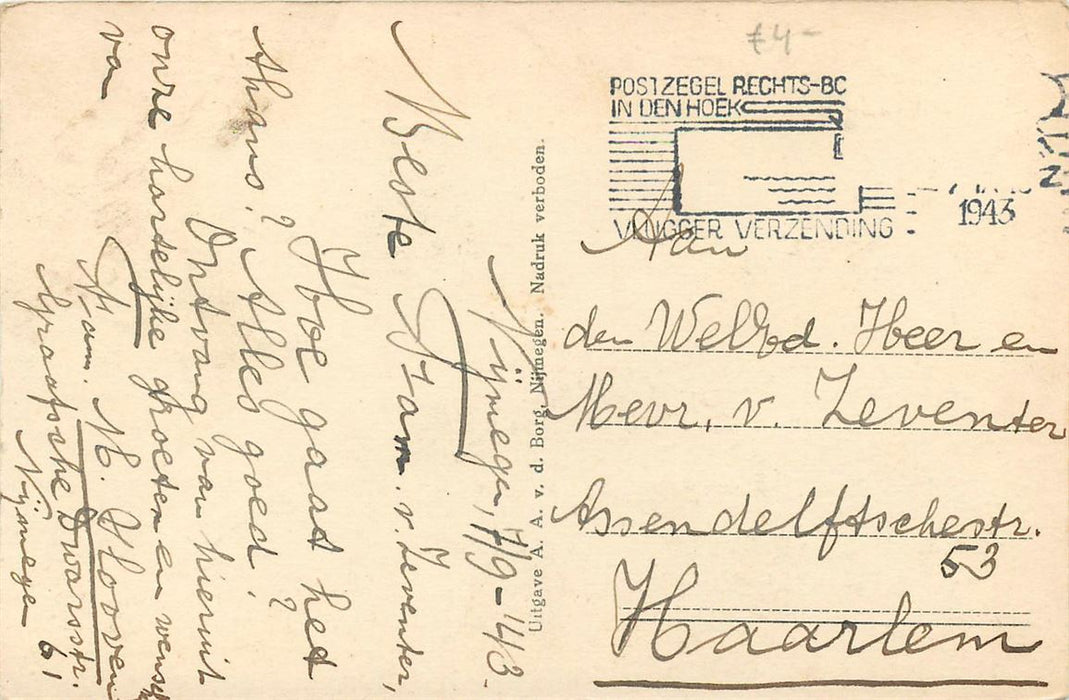 £4-
POSTZEGEL RECHTS-BO
IN DEN HOEK
VLUGGER VERZENDING
1943
Nijmegen, 7/9-'43.
Beste Fam. v. Zeventer,
Hoe gaat het
thans? Alles goed?
Ontvang van hieruit
onze hartelijke groeten en wensch
va
Fam. M. Hooven
Graafsche Dwarsstr. 61
Nijmegen
Uitgave A. A. v. d. Borg, Nijmegen. Nadruk verboden.
Aan
den WelEd. Heer en
Mevr. v. Zeventer
Assendelftschestr.
53
Haarlem